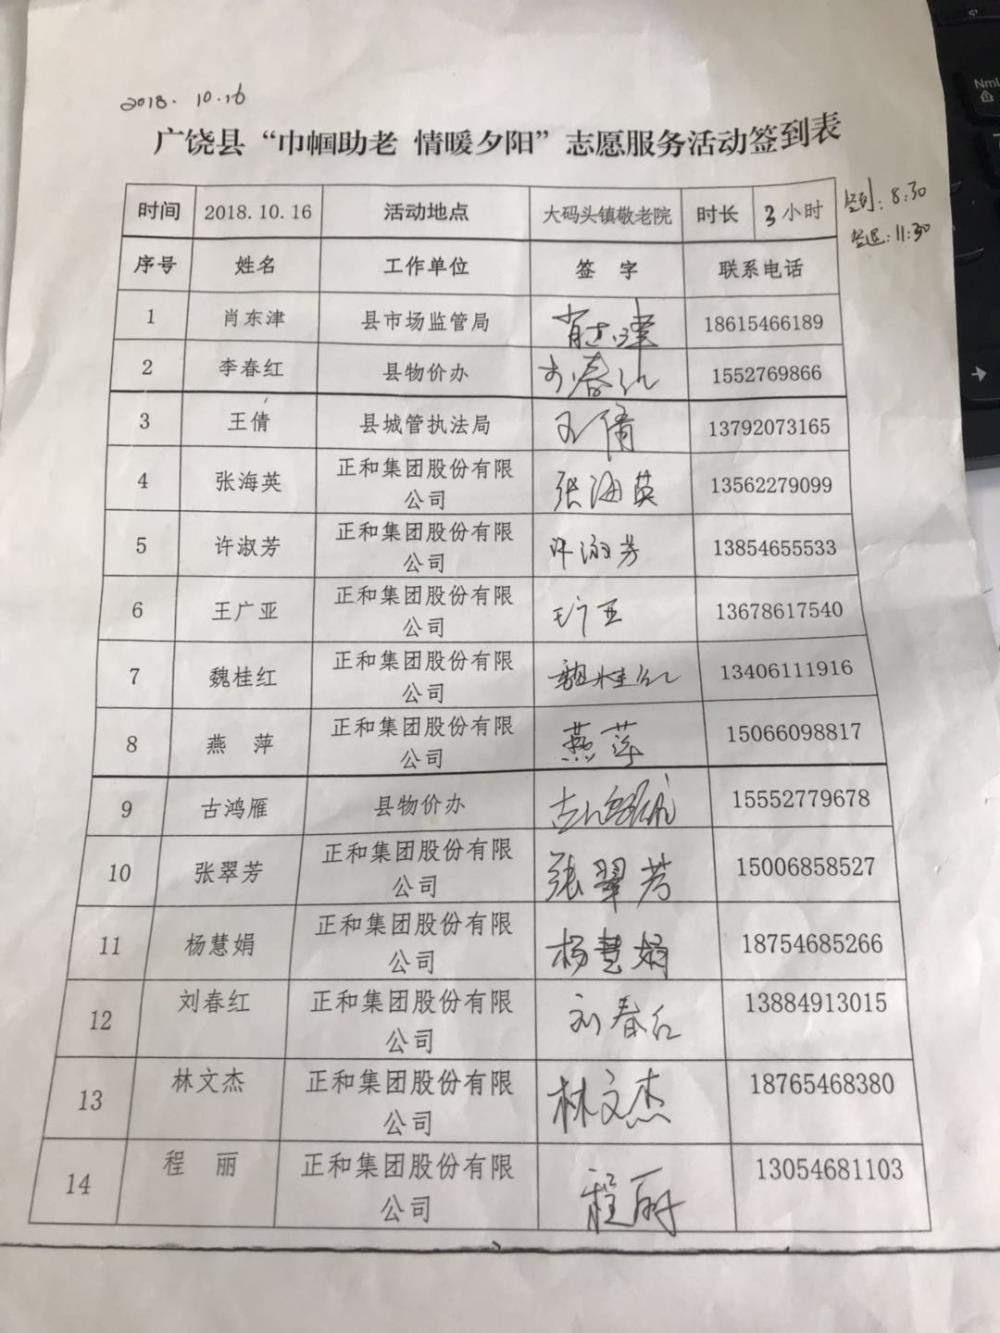 2018.10.16
广饶县“巾帼助老 情暖夕阳”志愿服务活动签到表
时间 2018.10.16 活动地点 大码头镇敬老院 时长 3小时
签到: 8:30
签退: 11:30
序号 姓名 工作单位 签 字 联系电话
1 肖东津 县市场监管局 肖东津 18615466189
2 李春红 县物价办 李春红 1552769866
3 王倩 县城管执法局 王倩 13792073165
4 张海英 正和集团股份有限 张海英 13562279099
公司
5 许淑芳 正和集团股份有限 许淑芳 13854655533
公司
6 王广亚 正和集团股份有限 王广亚 13678617540
公司
7 魏桂红 正和集团股份有限 魏桂红 13406111916
公司
8 燕 萍 正和集团股份有限 燕萍 15066098817
公司
9 古鸿雁 县物价办 古鸿雁 15552779678
10 张翠芳 正和集团股份有限 张翠芳 15006858527
公司
11 杨慧娟 正和集团股份有限 杨慧娟 18754685266
公司
12 刘春红 正和集团股份有限 刘春红 13884913015
公司
13 林文杰 正和集团股份有限 林文杰 18765468380
公司
14 程 丽 正和集团股份有限 程丽 13054681103
公司